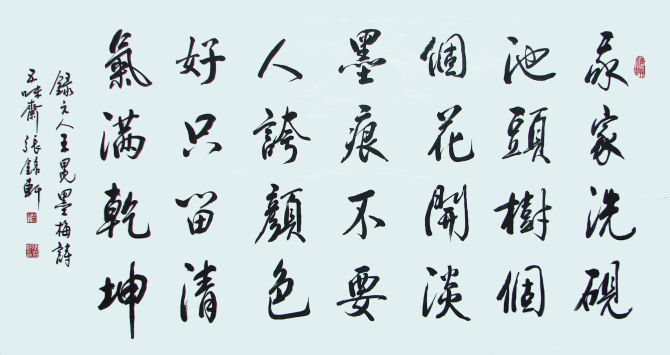 我家洗硯
池頭樹個
個花開淡
墨痕不要
人誇顏色
好只留清
氣滿乾坤
録元人王冕墨梅詩
齋張銘軒